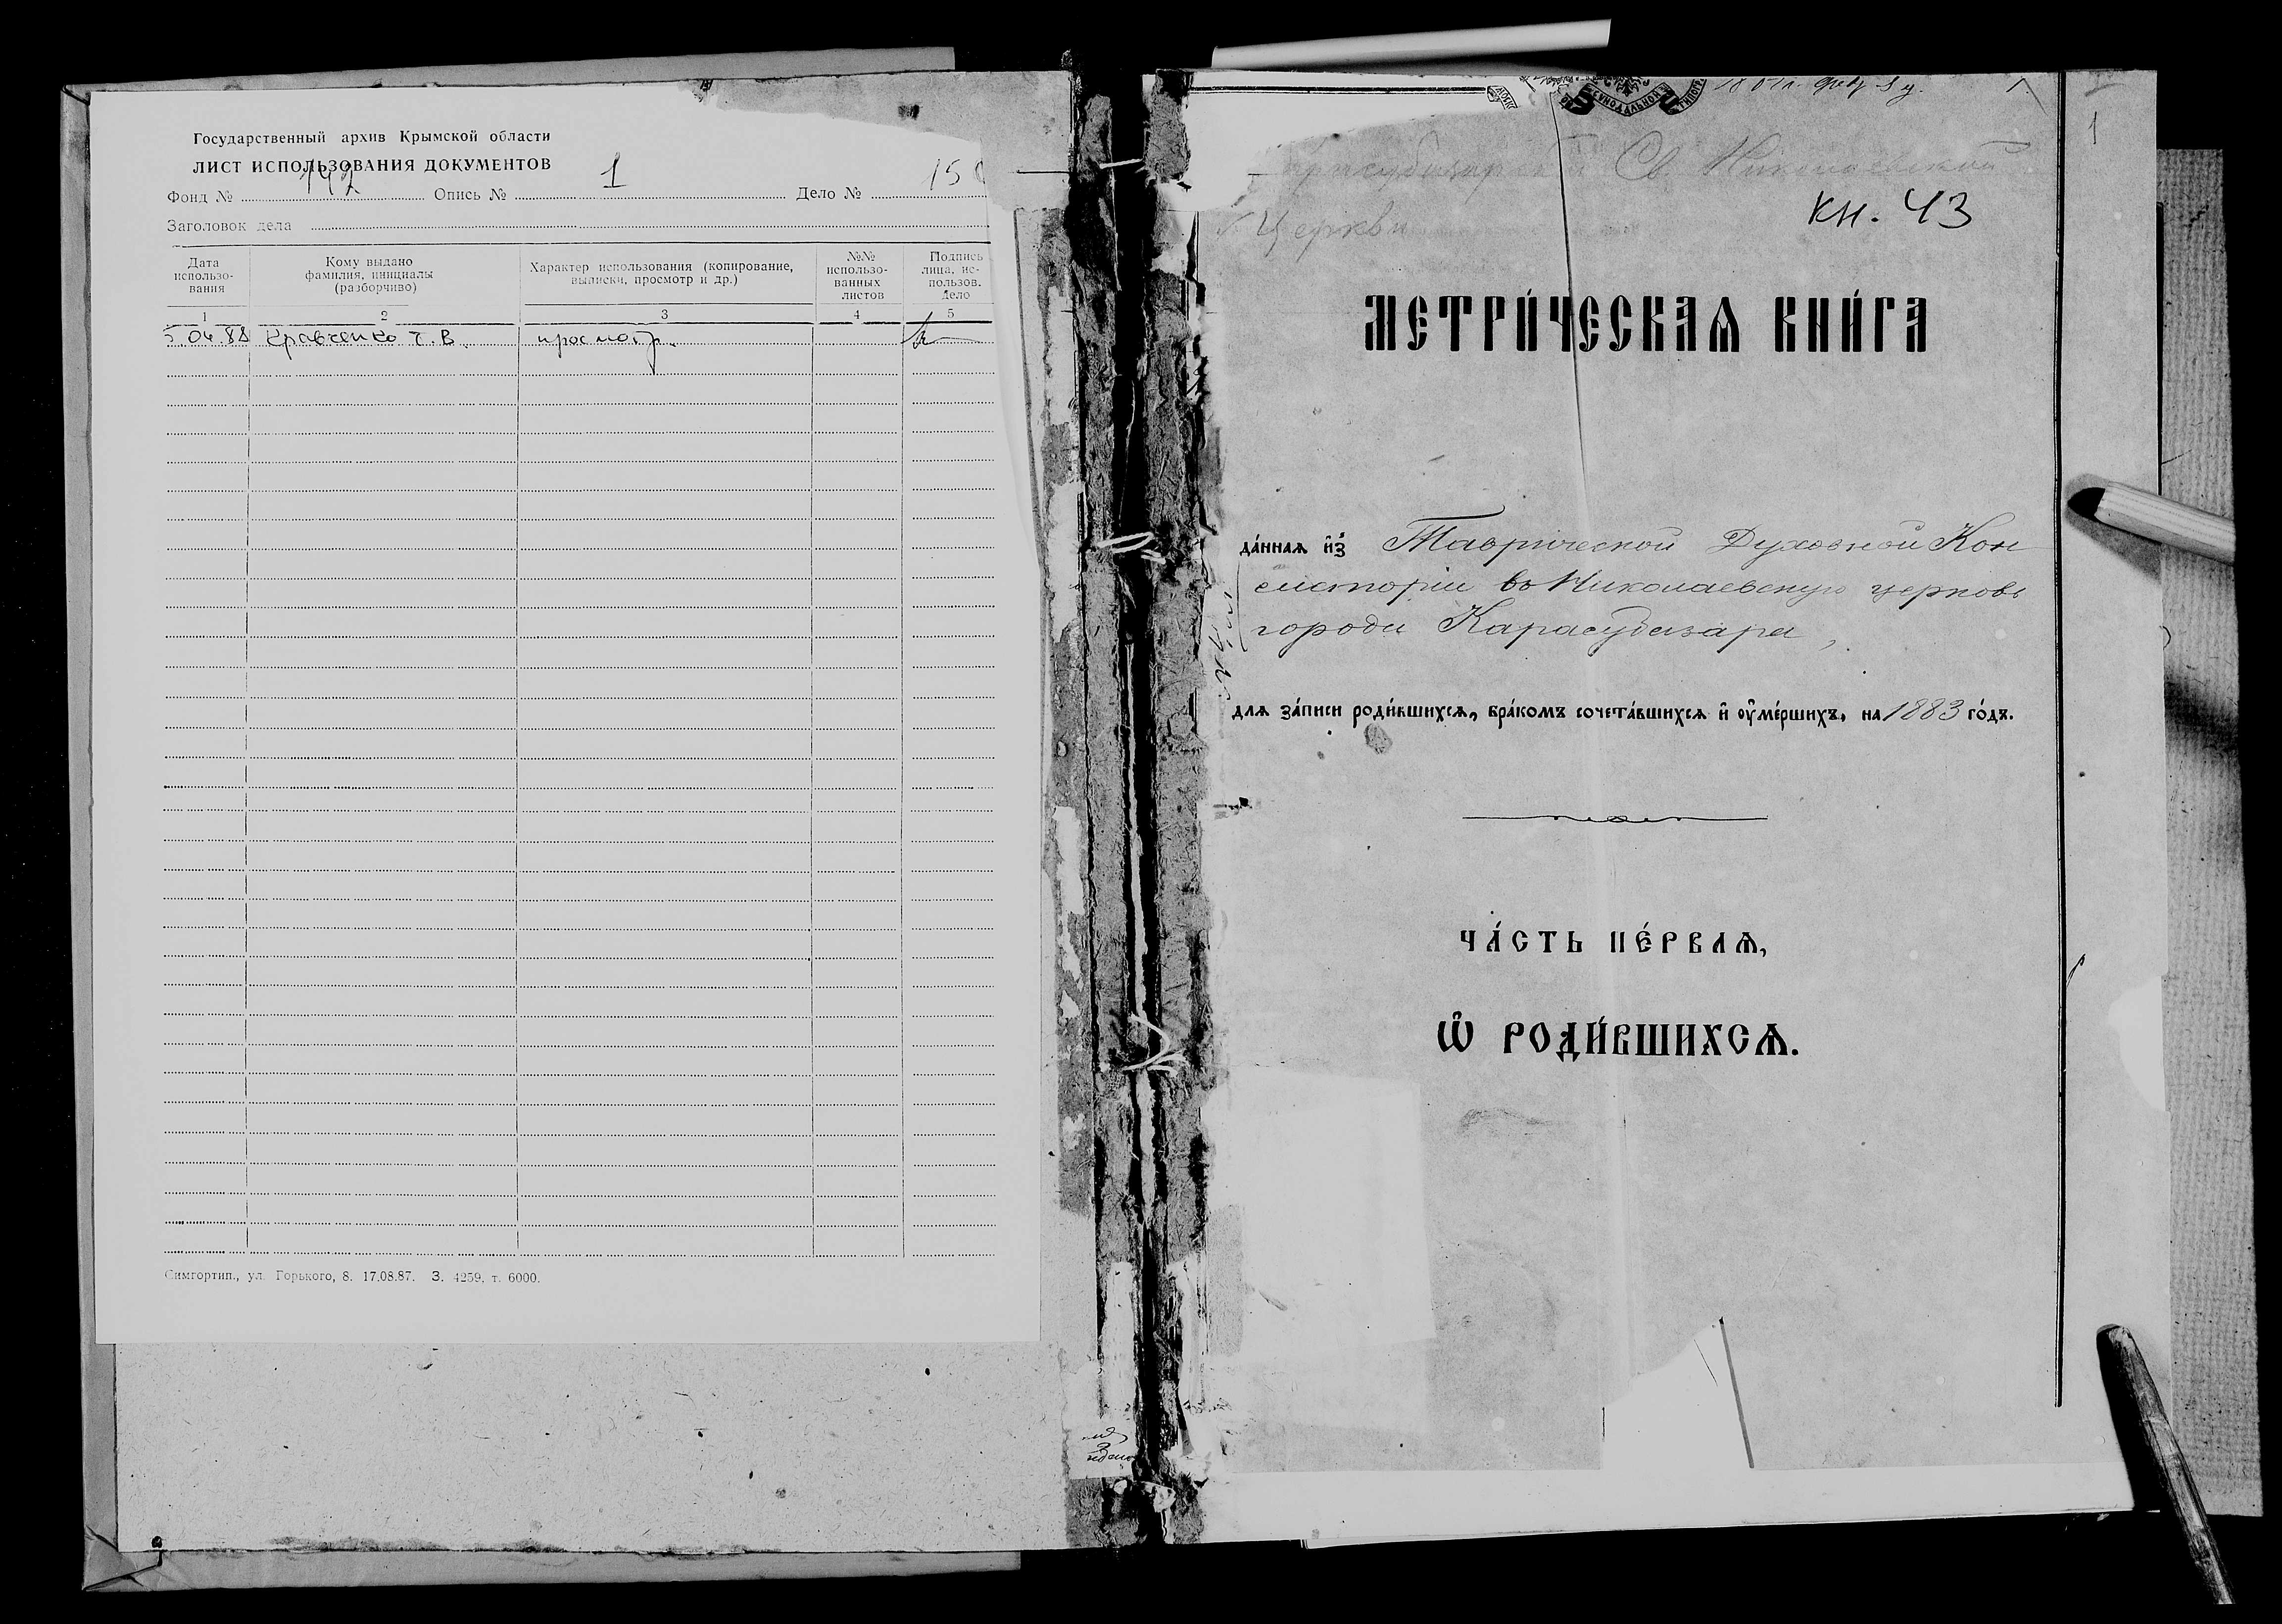 Государственный архив Крымской области
ЛИСТ ИСПОЛЬЗОВАНИЯ ДОКУМЕНТОВ
Фонд № 142 Опись № 1 Дело №
Заголовок дела
Дата использо-вания
Кому выдано фамилия, инициалы (разборчиво)
Характер использования (копирование, выписки, просмотр и др.)
№№ использо-ванных листов
Подпись лица, ис-пользов. дело
1 2 3 4 5
5.04.88 Кравченко просмотр.
Симгортип., ул. Горького, 8. 17.08.87. З. 4259, т. 6000.
1
Св. Николаевской
Церкви
кн. 43
МЕТРИ́ЧЕСКАѦ КНИ́ГА
да́ннаѧ и҆з̾ Таврической Духовной Кон
систоріи въ Николаевскую церковь
города Карасубазара,
длѧ за́писи роди́вшихсѧ, бра́комъ сочета́вшихсѧ и҆ ᲂу҆ме́ршихъ, на 1883 го́дъ.
ЧА́СТЬ ПЕ́РВАѦ,
Ѽ РОДИ́ВШИХСѦ.